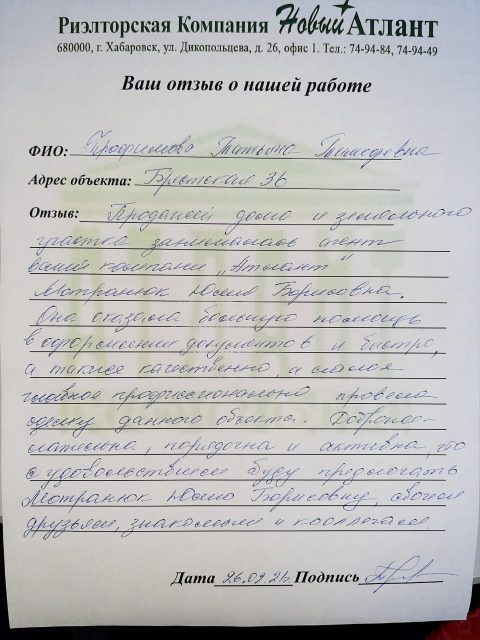 Риэлторская Компания Новый Атлант
680000, г. Хабаровск, ул. Дикопольцева, д. 26, офис 1. Тел.: 74-94-84, 74-94-49
Ваш отзыв о нашей работе
ФИО: Трофимова Татьяна Тимофеевна
Адрес объекта: Брестская 36
Отзыв: Продажей дома и земельного
участка занималась агент
вашей компании „Атлант"
Мотранюк Юлия Борисовна.
Она оказала большую помощь
в оформлении документов и быстро,
а также качественно, и самое
главное профессионально провела
сделку данного объекта. Доброже-
лательна, порядочна и активна, что
с удовольствием буду предлогать
Мотранюк Юлию Борисовну, своим
друзьям, знакомым и коллегам.
Дата 26.09.21г Подпись